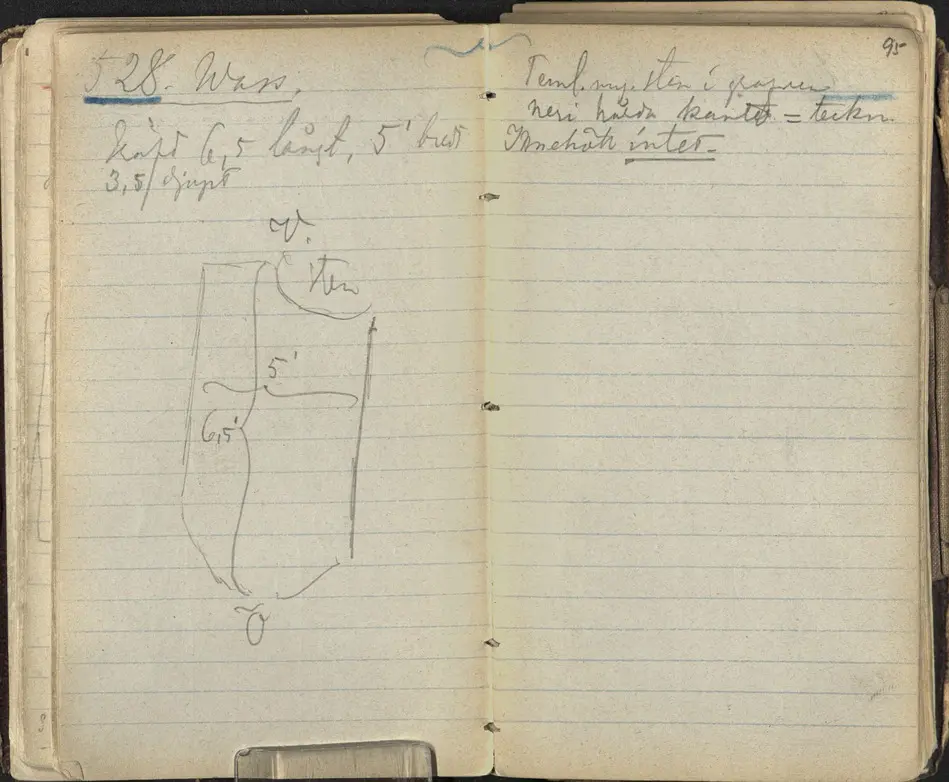 528. Wass.
långt 6,5 långt, 5' bredt
3,5/djupt
V.
Sten
5'
6,5'
Ö
95
Teml. my. sten i grafven
neri hårda = teckn.
Innehöll intet.